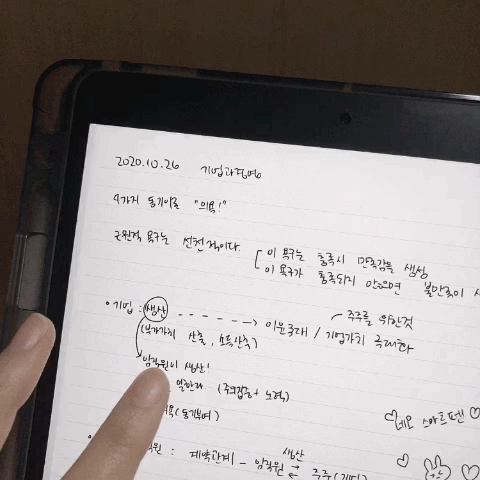 2020.10.26 기업과경영
4가지 동기이론 "의욕!"
근원적 욕구는 선천적이다. [이 욕구는 충족시 만족감을 생성
이 욕구가 충족되지 않으면 불만족이
주주를 위한것
• 기업 : 생산 - - - - - -> 이윤극대 / 기업가치 극대화
(부가가치 산출, 소득산출)
임직원이 생산!
일한다 (주의집중 + 노력)
(동기부여)
생산
: 계약관계 - 임직원 ⇄ 주주
♡네오 스마트펜♡